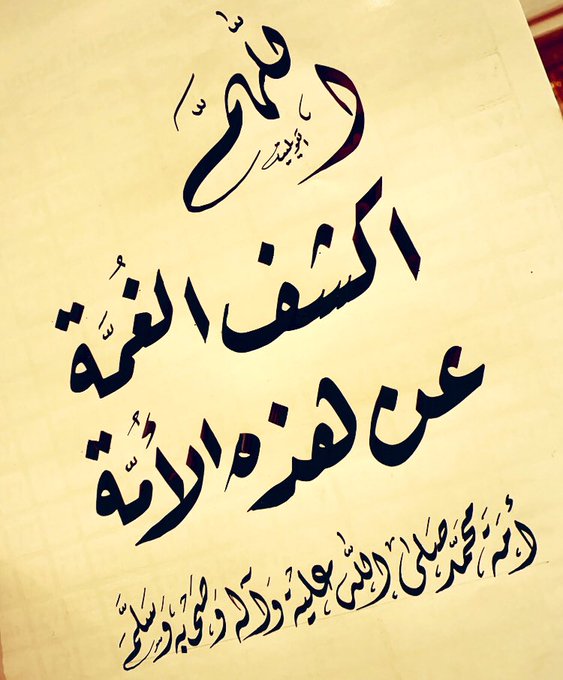 اللهمَّ
اكشف الغُمَّة
عن هذه الأُمَّة
أمَة محمَّد صَلى اللَّه عليه وَآله وَصَحْبِه وَسَلَّمَ